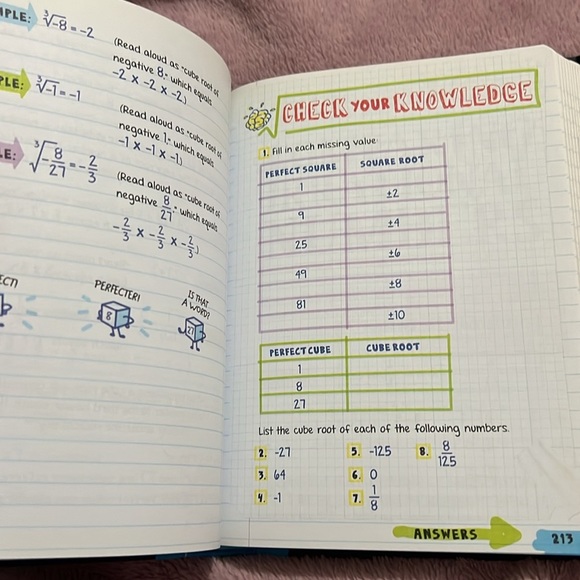 MPLE: ∛-8 = -2
(Read aloud as "cube root of
negative 8," which equals
-2 x -2 x -2.)
PLE: ∛-1 = -1
(Read aloud as "cube root of
negative 1," which equals
-1 x -1 x -1.)
LE: ∛-8/27 = -2/3
(Read aloud as "cube root of
negative 8/27," which equals
-2/3 x -2/3 x -2/3.)
PERFECTER!
8
IS THAT
A WORD?
27
CHECK YOUR KNOWLEDGE
1. Fill in each missing value
PERFECT SQUARE SQUARE ROOT
1
±2
9
±4
25
±6
49
±8
81
±10
PERFECT CUBE CUBE ROOT
1
8
27
List the cube root of each of the following numbers.
2. -27 5. -125 8. 8/125
3. 64 6. 0
4. -1 7. 1/8
ANSWERS 213